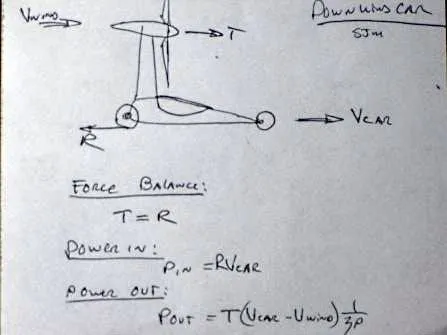 VWIND
DOWNWIND CAR
T
SJM
VCAR
R
FORCE BALANCE:
T = R
POWER IN:
PIN = RVCAR
POWER OUT:
POUT = T(VCAR - VWIND) 1/ηP